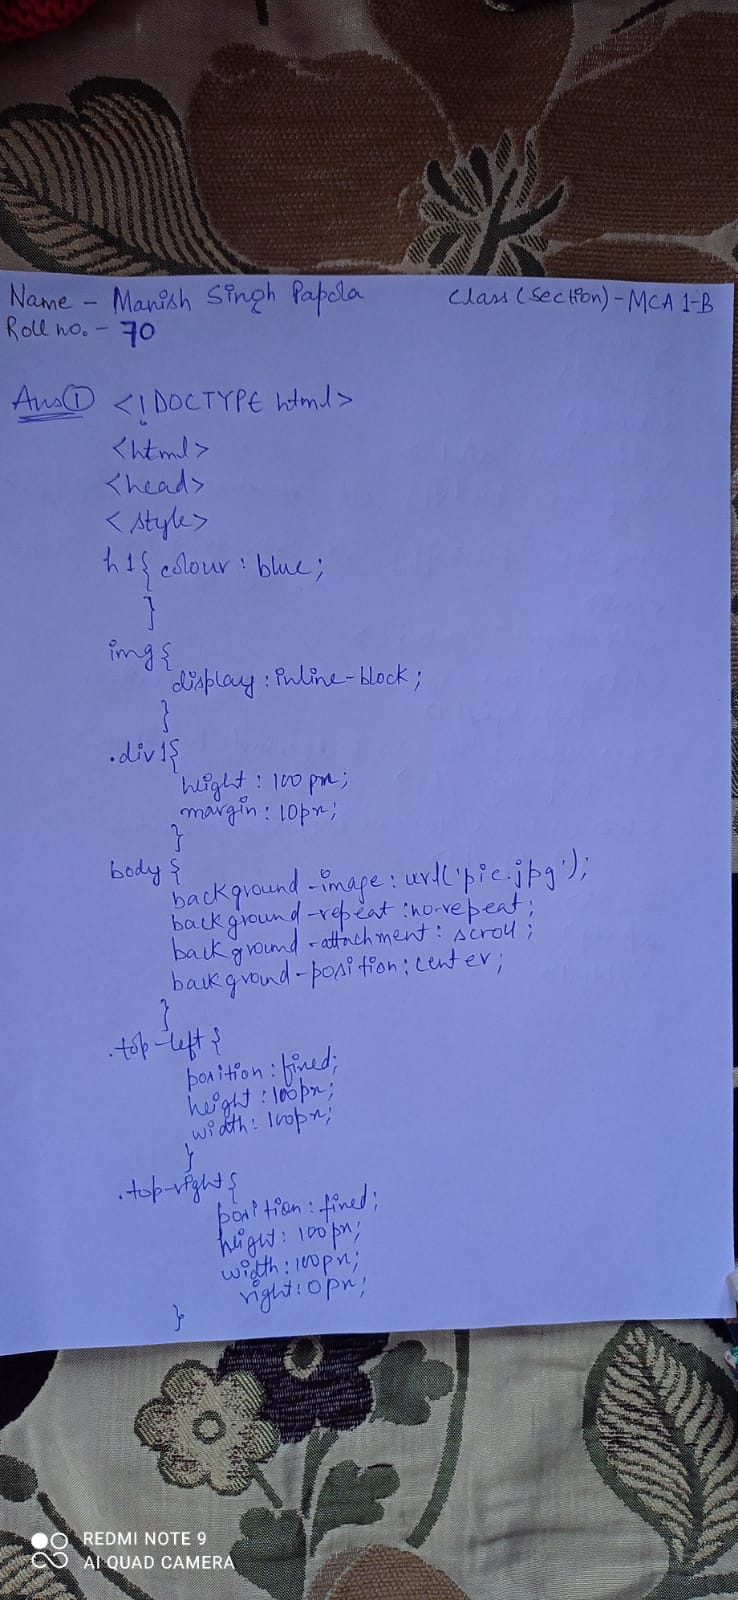 Name - Manish Singh Papola Class (Section) - MCA 1-B
Roll no. - 70
Ans ① <!DOCTYPE html>
<html>
<head>
<style>
h1{ colour : blue;
}
img{
display : inline-block;
}
.div1{
height : 100px;
margin : 10px;
}
body {
background-image : url('pic.jpg');
background-repeat : no-repeat;
background-attachment : scroll;
background-position : center;
}
.top-left {
position : fixed;
height : 100px;
width : 100px;
}
.top-right {
position : fixed;
height : 100px;
width : 100px;
right : 0px;
}
REDMI NOTE 9
AI QUAD CAMERA